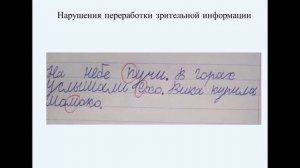 Нарушения переработки зрительной информации
На небе пучи. В горах
услышали Схо. Вика курила
момоко.